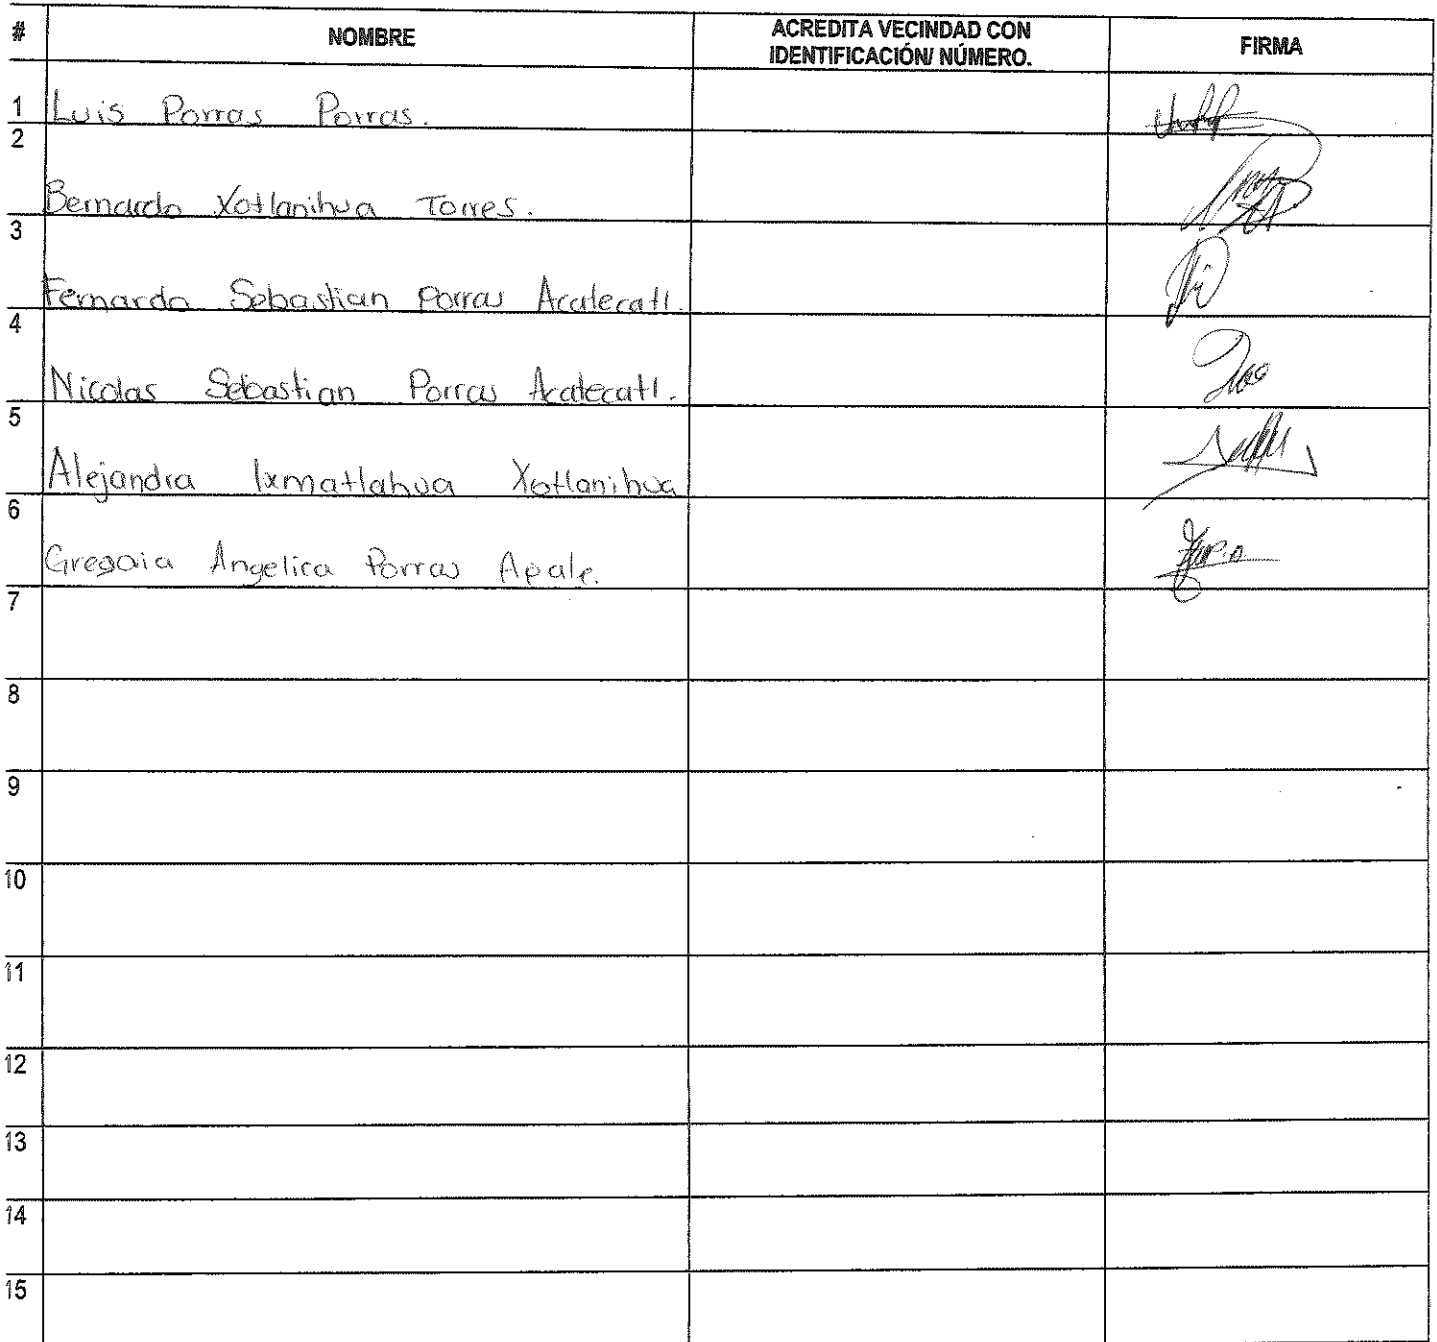 # NOMBRE ACREDITA VECINDAD CON IDENTIFICACIÓN/ NÚMERO. FIRMA
1 Luis Porras Porras.
2 Bernardo Xotlanihua Torres.
3 Fernardo Sebastian Porras Acatecatl.
4 Nicolas Sebastian Porras Acatecatl.
5 Alejandra Ixmatlahua Xotlanihua
6 Gregoria Angelica Porras Apale.
7
8
9
10
11
12
13
14
15